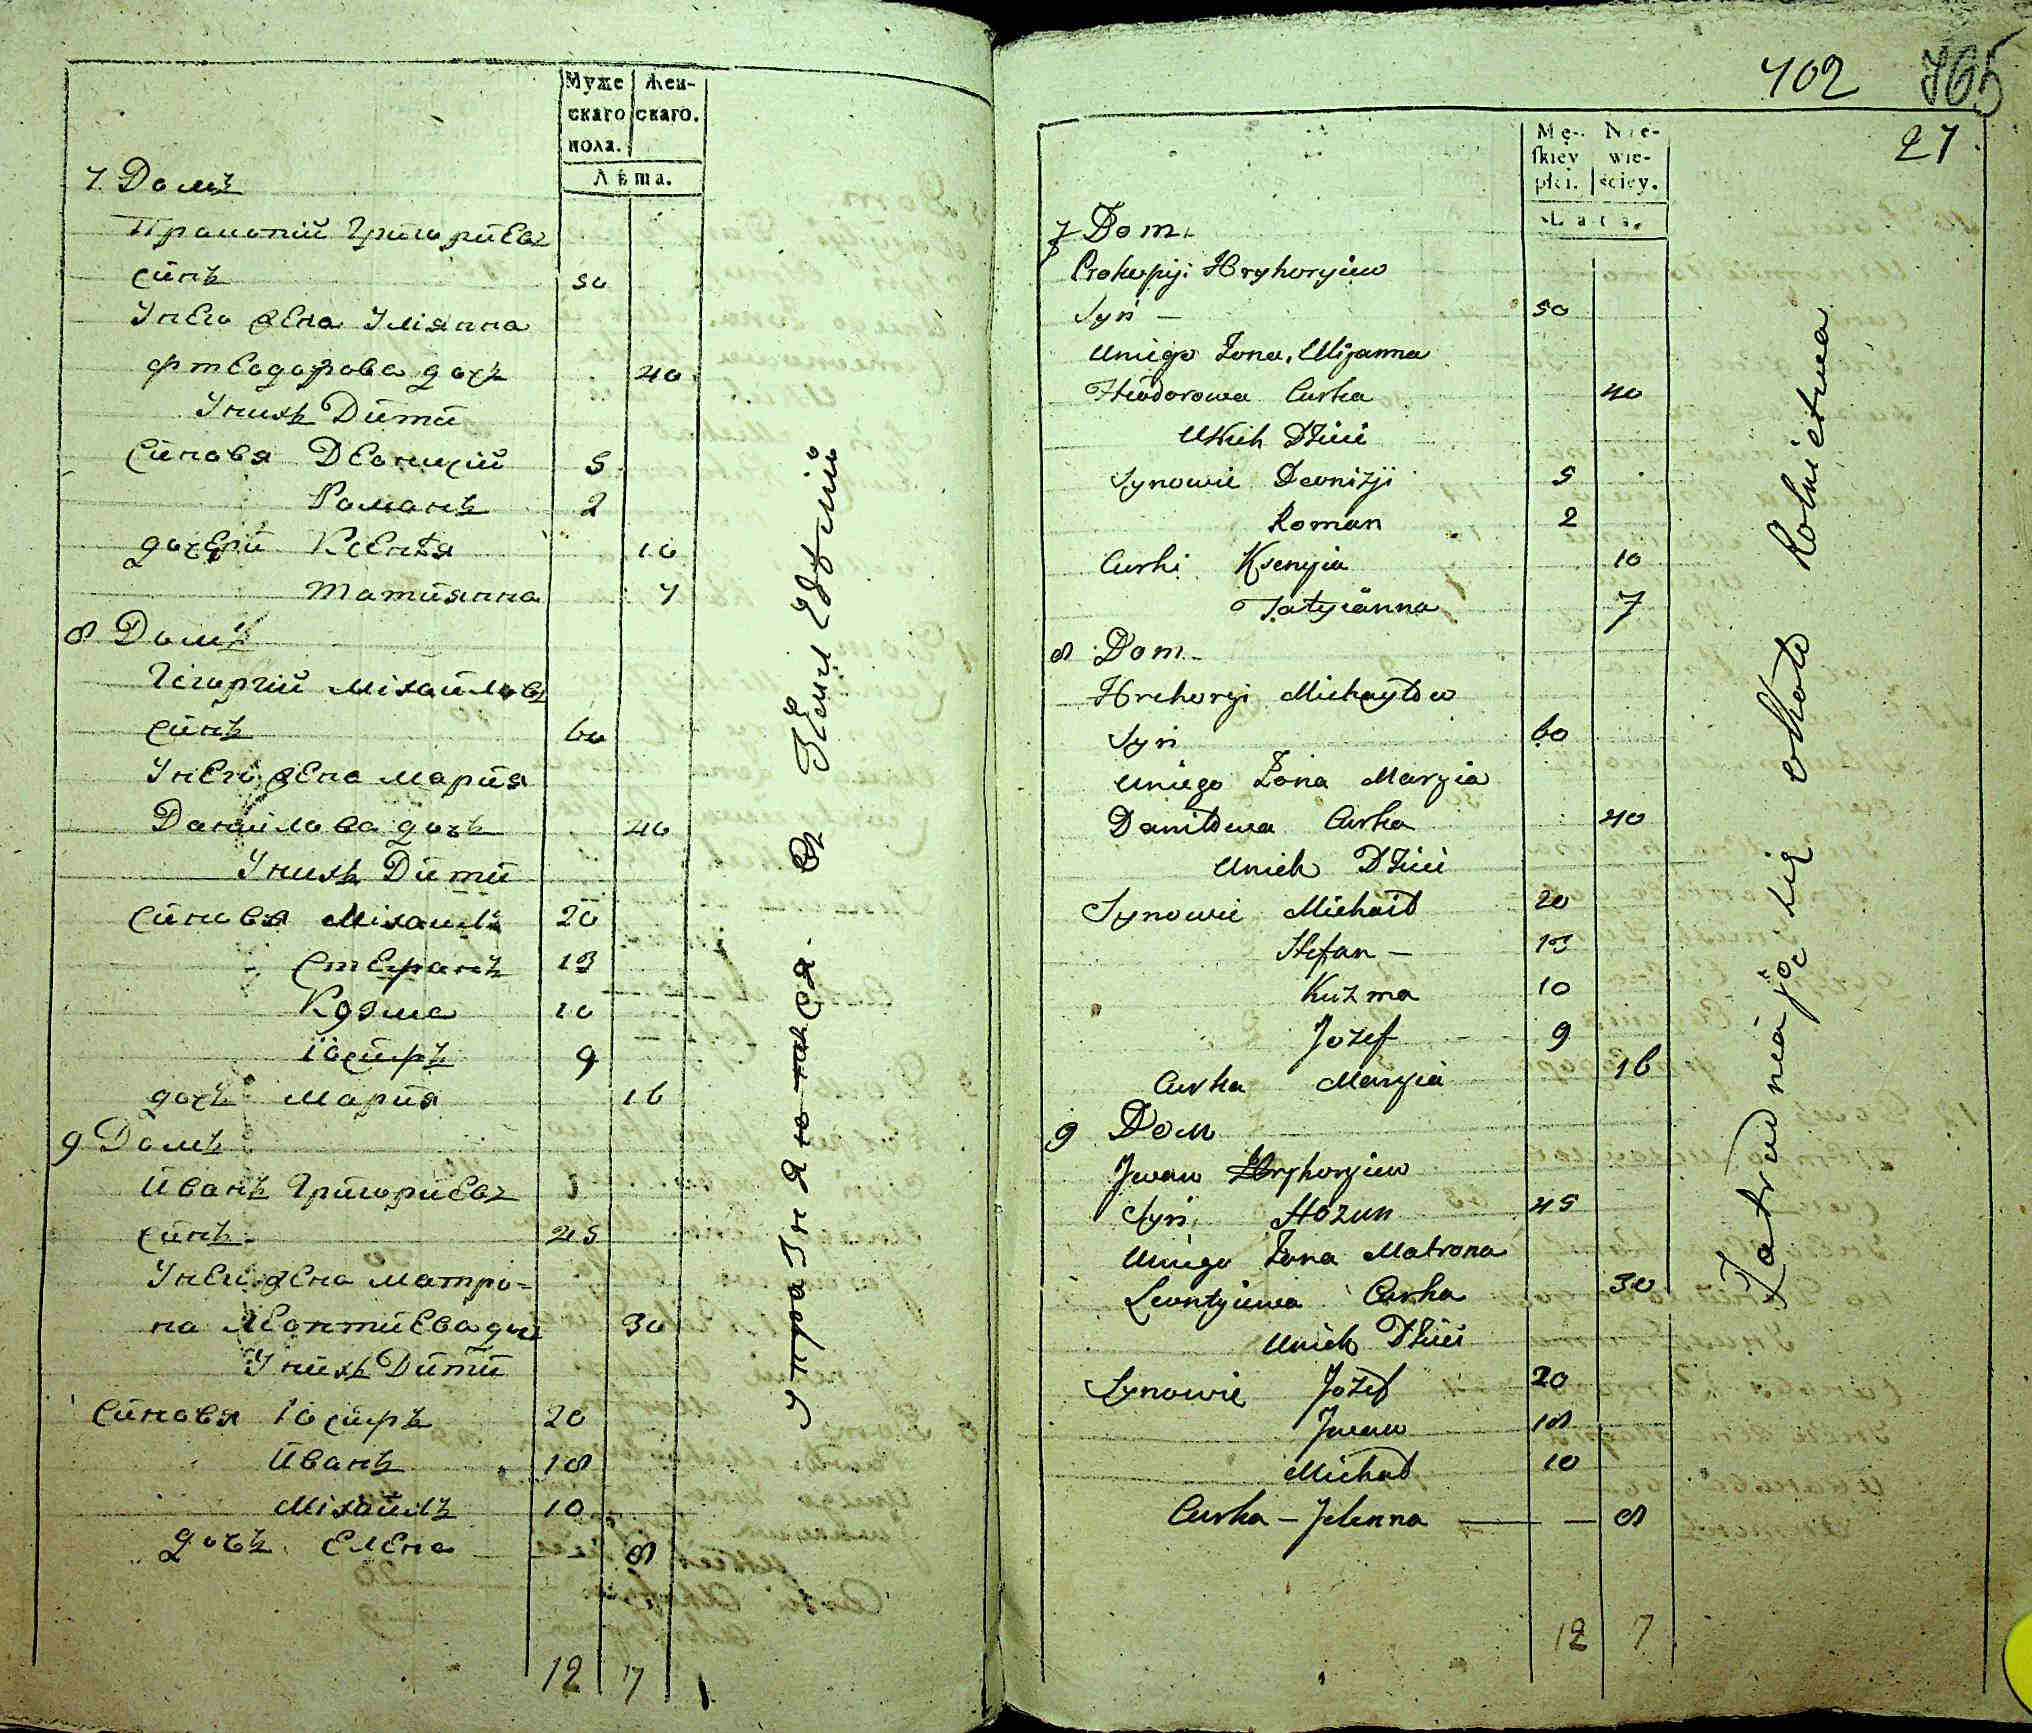 Муже
скаго
пола.
Жен-
скаго.
Лѣта.
7 Домъ
Прокопий Григориевъ
синъ 50
Унего жена Улiянна
Фтеодорова дочъ 40
Унихъ Дити
Синовя Деонизiй 5
Романъ 2
дочери Ксенѣя 10
Татиянна 7
8 Домъ
Григорий Мiхайловъ
синъ 60
Унего жена Мария
Данилова дочъ 40
Унихъ Дити
Синовя Мiхаилъ 20
Стефанъ 13
Козма 10
Iосифъ 9
дочъ Мария 16
9 Домъ
Иванъ Григориевъ
синъ 45
Унего жена Матро-
на Леонтиева дочъ 30
Унихъ Дити
Синовя Iосифъ 20
Иванъ 18
Мiхаилъ 10
дочъ Елена 8
12 7
Упразняются
102 765
27
Mę-
skiey
płci.
Nie-
wie-
ściey.
Lata.
7 Dom
Prokopyi Hryhoryiew
Syn — 50
Uniego Żona Ulijanna
Theodorowa Curka 40
Unich Dzieci
Synowie Deonizji 5
Roman 2
Curki Ksenyia 10
Tatyianna 7
8 Dom
Hrehoryi Michayłow
Syn 60
Uniego Żona Maryia
Daniłowa Curka 40
Unich Dzieci
Synowie Michaił 20
Stefan — 13
Kuzma 10
Jozef 9
Curka Maryia 16
9 Dom
Jwan Hryhoryiew
Syn Hozun 45
Uniego Żona Matrona
Leontyiewa Curka 30
Unich Dzieci
Synowie Jozef 20
Jwan 18
Michał 10
Curka — Jelenna — 8
12 7
Zatrudniające się około Rolnictwa